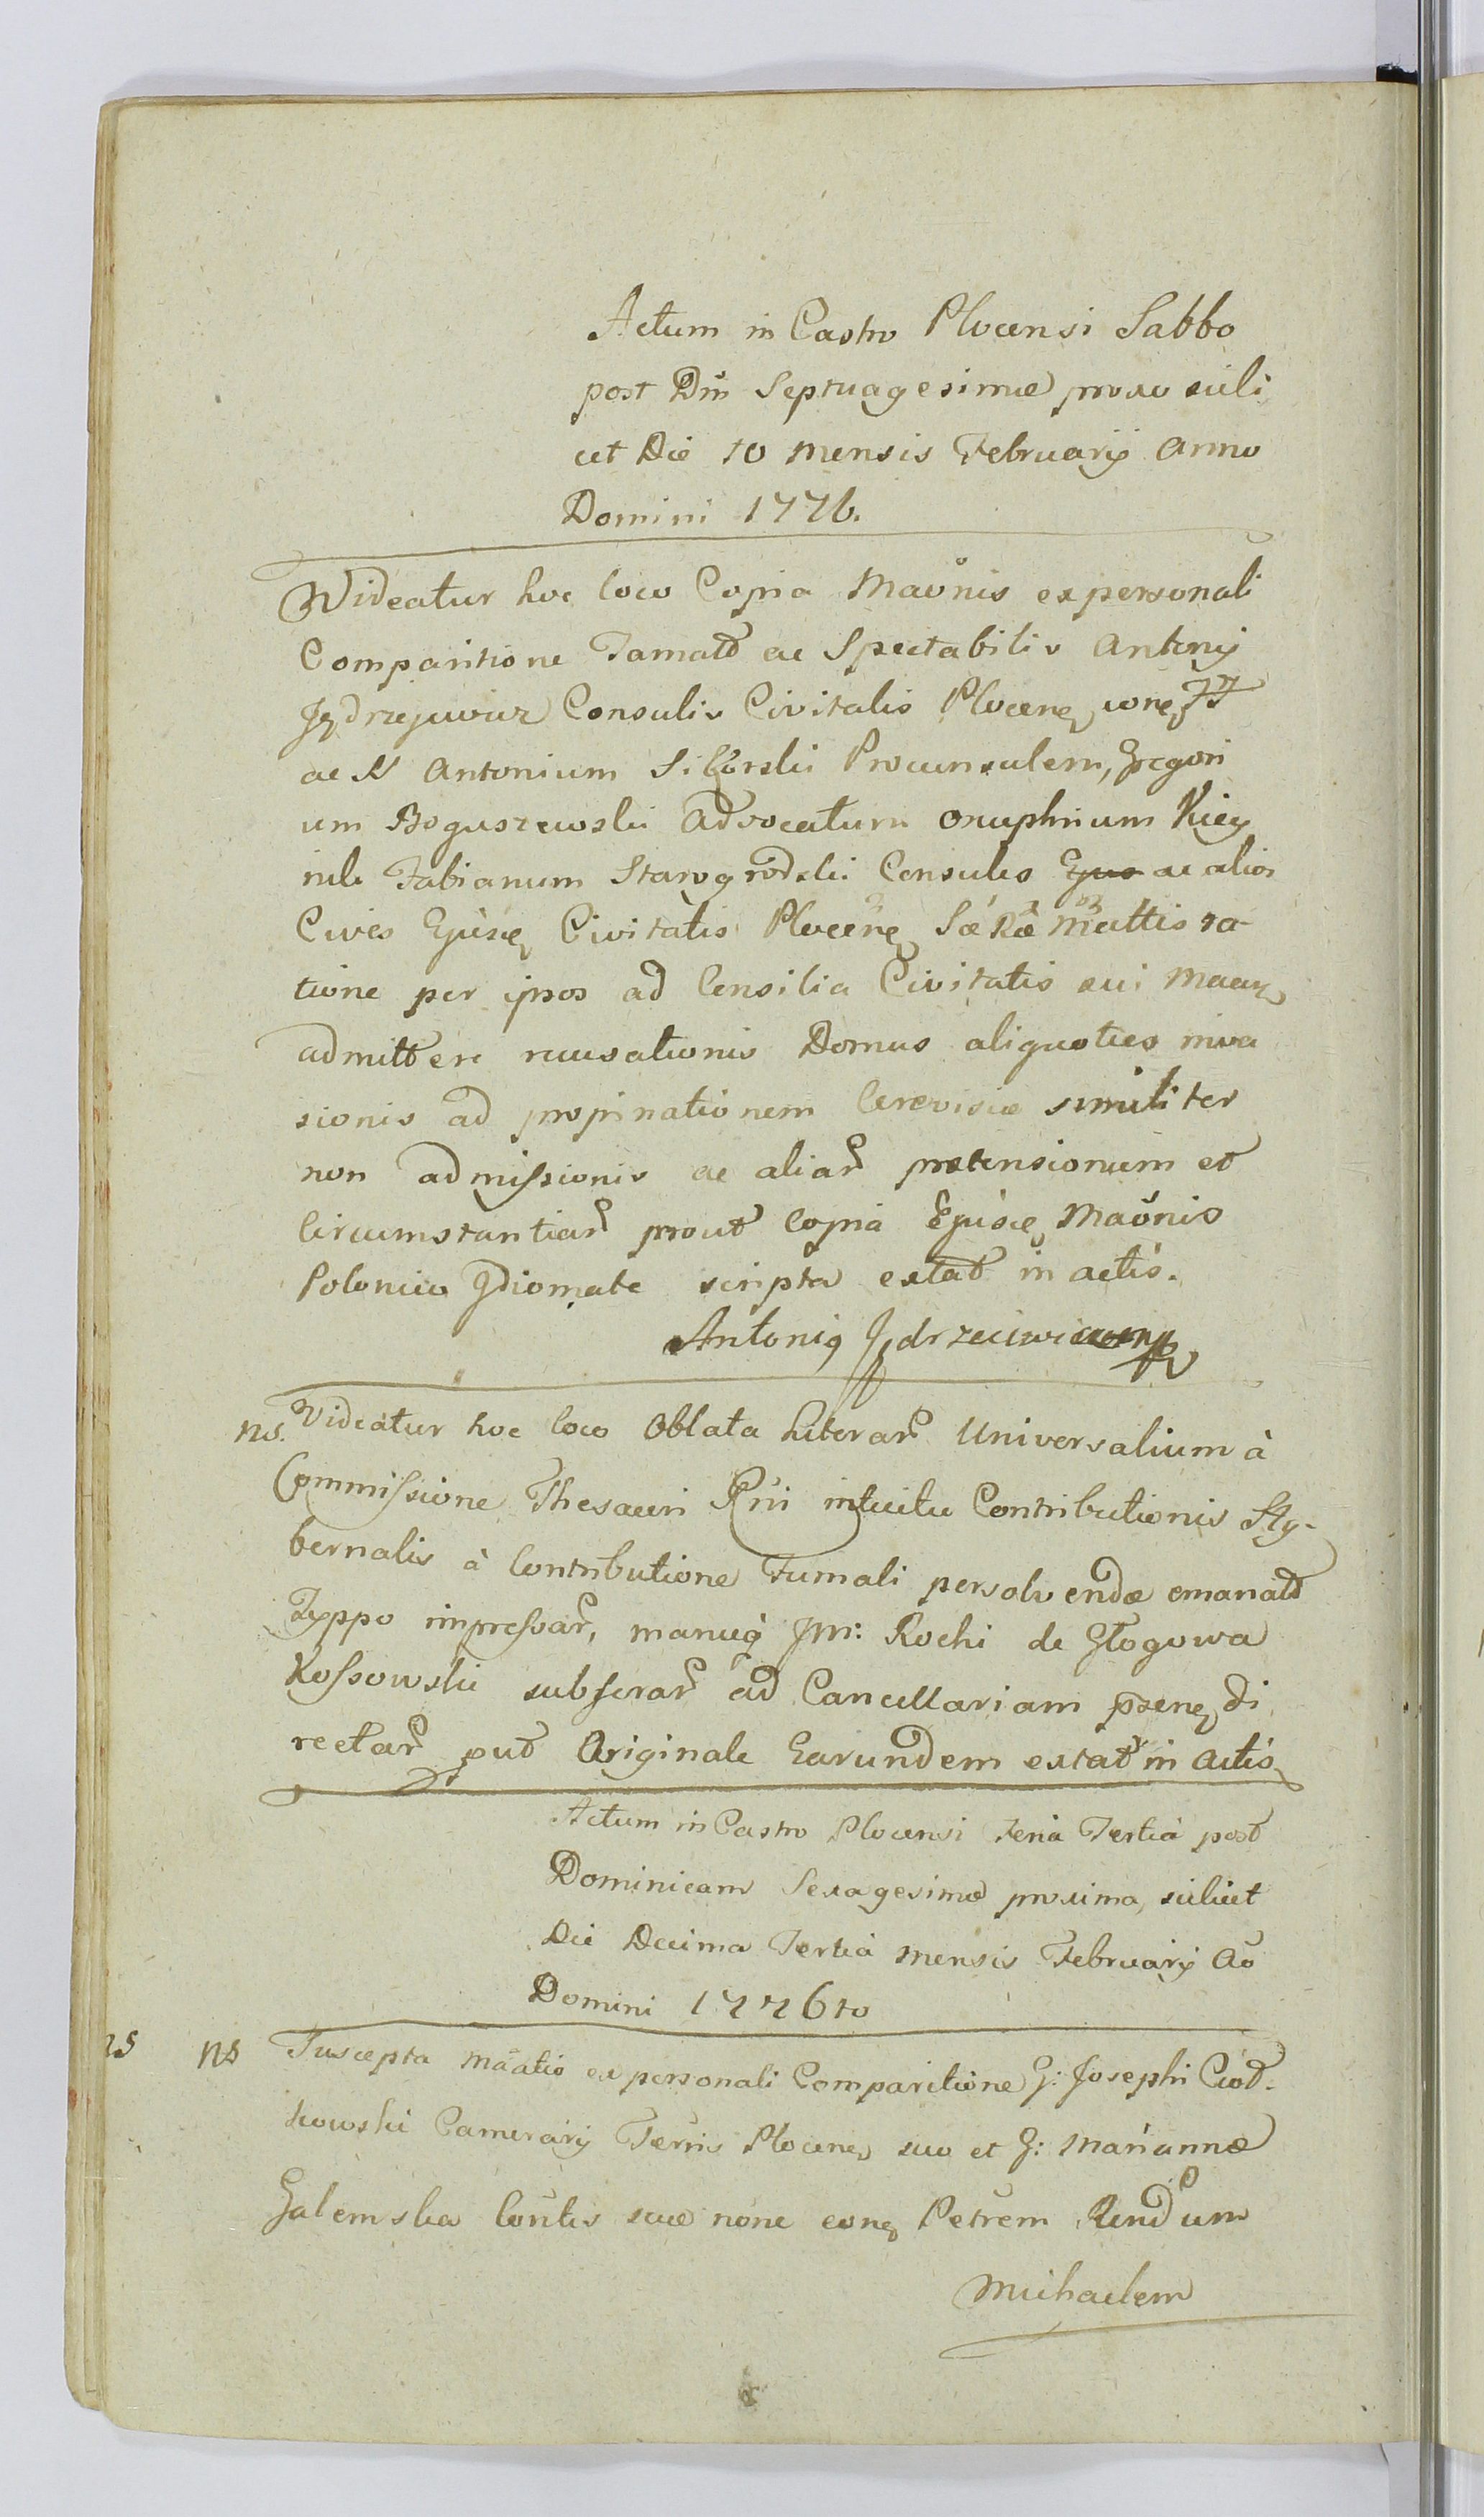 Actum in Castro Plocensi Sabbo
post Dm̃ Septuagesimæ proxo scili
cet Die 10 Mensis Februarij Anno
Domini 1776.
Videatur hoc loco Copia Maõnis ex personali
Comparitione Famatt ac Spectabilis Antonij
Jędrzejewicz Consulis Civitatis Plocen conq FF
ac SS Antonium Sikorski Proconsulem, Gregori
um Boguszewski Advocatum Onuphrium
Fabianum Starogrodzki Consules ac alios
Cives Ejusq Civitatis Plocen̄ Sæ Ræ Mattis ra-
tione per ipsos ad Consilia Civitatis sui
admittere recusationis Domus aliquoties inva
sionis ad propinationem Cerevisiæ similiter
non admissionis ac aliar prætensionum et
Circumstantiar prout Copia Ejusq Maõnis
Polonico Idiomate scripta extat in actis.
Antoni Jędrzeiewicz mp
ns. Videatur hoc loco Oblata Literar Universalium à
Commissione Thesauri Rn̄i intuitu Contributionis Hy-
bernalis à Contributione Fumali persolvendæ emanatt
Typpo impressar, manuq Jm: Rochi de Głogowa
Kossowski subscrar ad Cancellariam præn di
rectar put Originale Earundem extat in Actis
Actum in Castro Plocensi Feria Tertia post
Dominicam Sexagesimæ proxima, scilicet
Die Decima Tertia Mensis Februarij Aõ
Domini 1776to
ns ns Suscepta Mãatio ex personali Comparitione G: Josephi Ciod-
kowski Camerarij Terris Plocen suo et G: Mariannæ
Galemska Con̄tis suæ nõne conq Petrum Rendum
Michaelem